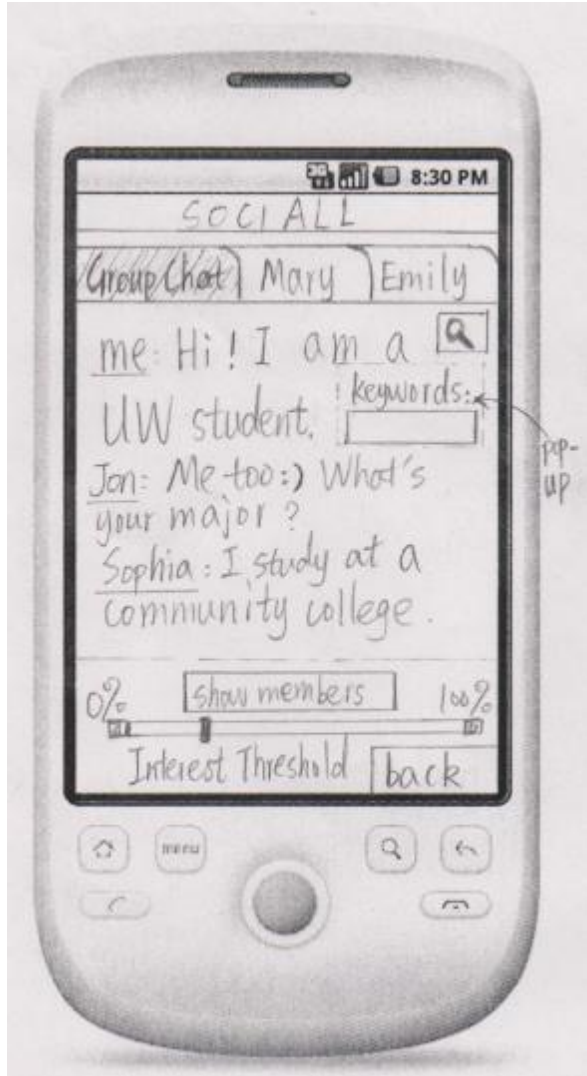 8:30 PM
SOCIALL
Group Chat Mary Emily
me: Hi! I am a
UW student.
keywords:
pop-
up
Jon: Me too:) What's
your major?
Sophia: I study at a
community college.
show members
0% 100%
Interest Threshold
back
menu